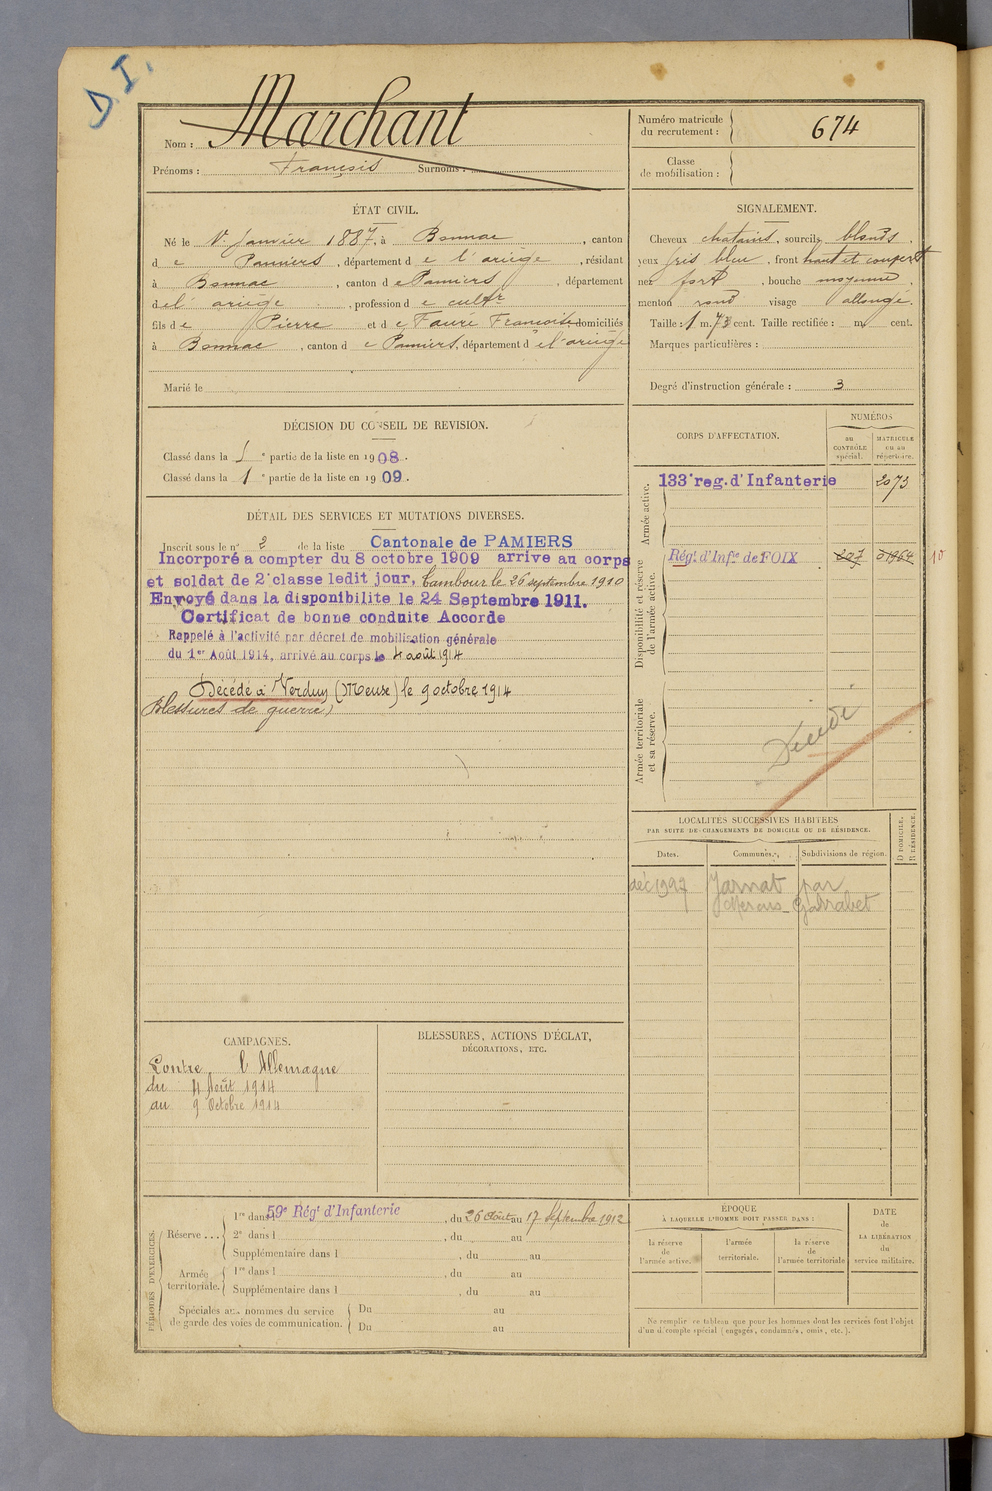 D. I.
Nom : Marchant
Prénoms : François Surnoms :
Numéro matricule du recrutement : 674
Classe de mobilisation :
ÉTAT CIVIL.
Né le 1er Janvier 1887, à Bonnac, canton
de Pamiers, département de l'ariège, résidant
à Bonnac, canton de Pamiers, département
de l'ariège, profession de cultr
fils de Pierre et de Faure Françoise domiciliés
à Bonnac, canton de Pamiers, département de l'ariège
Marié le
SIGNALEMENT.
Cheveux chatains, sourcils blonds,
yeux gris bleu, front haut et
nez fort, bouche moyenne,
menton rond visage allongé.
Taille : 1 m. 73 cent. Taille rectifiée : m. cent.
Marques particulières :
Degré d'instruction générale : 3
DÉCISION DU CONSEIL DE REVISION.
Classé dans la 1e partie de la liste en 1908.
Classé dans la 1e partie de la liste en 1909.
DÉTAIL DES SERVICES ET MUTATIONS DIVERSES.
Inscrit sous le n° 2 de la liste Cantonale de PAMIERS
Incorporé a compter du 8 octobre 1909 arrive au corps
et soldat de 2e classe ledit jour, tambour le 26 septembre 1910
Envoyé dans la disponibilite le 24 Septembre 1911.
Certificat de bonne conduite Accorde
Rappelé à l'activité par décret de mobilisation générale
du 1er Août 1914, arrivé au corps le 4 août 1914
Décédé à Verdun (Meuse) le 9 octobre 1914
Blessures de guerre)
CORPS D'AFFECTATION.
NUMÉROS
au CONTRÔLE spécial.
MATRICULE ou au répertoire.
Armée active.
133e reg. d'Infanterie 2073
Disponibilité et réserve de l'armée active.
Régt d'Infie de FOIX 10
Armée territoriale et sa réserve.
Décédé
LOCALITÉS SUCCESSIVES HABITÉES
PAR SUITE DE CHANGEMENTS DE DOMICILE OU DE RÉSIDENCE.
Dates. Communes. Subdivisions de région. D DOMICILE. R RÉSIDENCE.
déc Jarnat par
Garrabet
CAMPAGNES.
Contre l'Allemagne
du 4 Août 1914
au 9 Octobre 1914
BLESSURES, ACTIONS D'ÉCLAT,
DÉCORATIONS, ETC.
PÉRIODES D'EXERCICES.
Réserve
1re dans l 59e Régt d'Infanterie, du 26 Août au 17 Septembre 1912
2e dans l , du au
Supplémentaire dans l , du au
Armée territoriale.
1re dans l , du au
Supplémentaire dans l , du au
Spéciales aux hommes du service de garde des voies de communication.
Du au
Du au
ÉPOQUE
À LAQUELLE L'HOMME DOIT PASSER DANS :
la réserve de l'armée active.
l'armée territoriale.
la réserve de l'armée territoriale
DATE de LA LIBÉRATION du service militaire.
Ne remplir ce tableau que pour les hommes dont les services font l'objet
d'un décompte spécial (engagés, condamnés, omis, etc.).